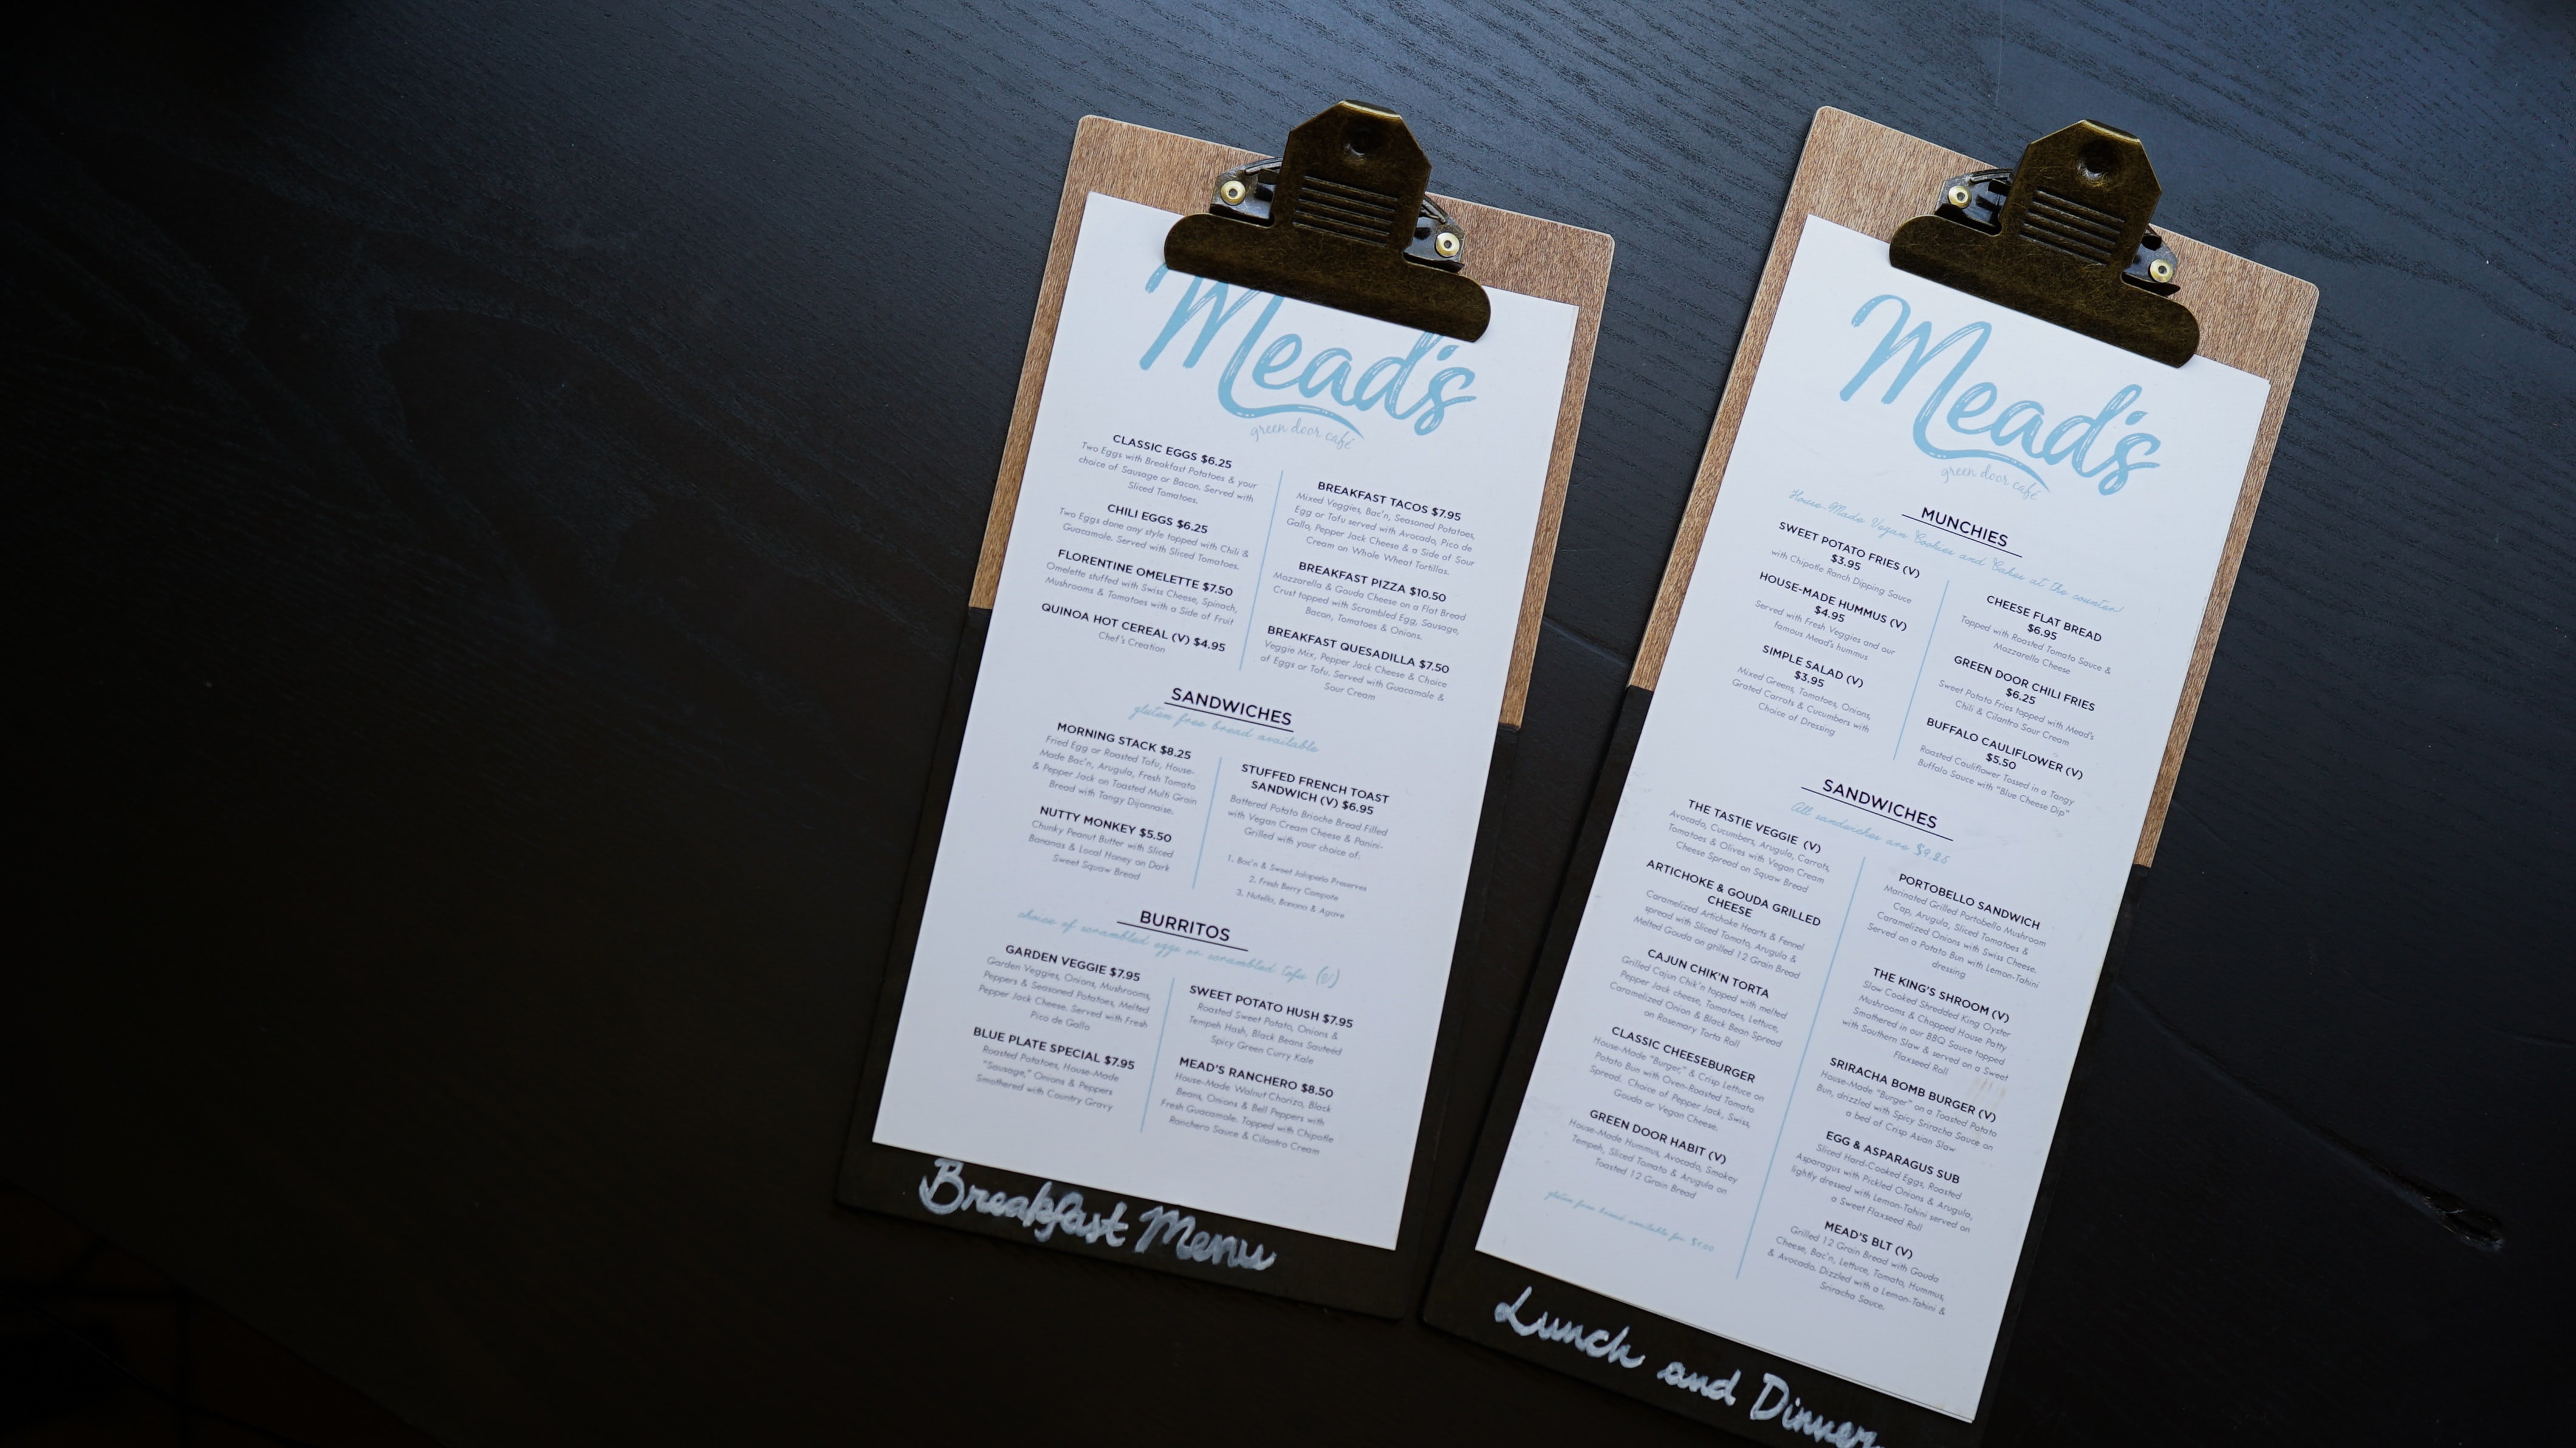 Mead's
green door café
CLASSIC EGGS $6.25
Two Eggs with Breakfast Potatoes & your
choice of Sausage or Bacon. Served with
Sliced Tomatoes.
CHILI EGGS $6.25
Two Eggs done any style topped with Chili &
Guacamole. Served with Sliced Tomatoes.
FLORENTINE OMELETTE $7.50
Omelette stuffed with Swiss Cheese, Spinach,
Mushrooms & Tomatoes with a Side of Fruit
QUINOA HOT CEREAL (V) $4.95
Chef's Creation
BREAKFAST TACOS $7.95
Mixed Veggies, Bac'n, Seasoned Potatoes,
Egg or Tofu served with Avocado, Pico de
Gallo, Pepper Jack Cheese & a Side of Sour
Cream on Whole Wheat Tortillas.
BREAKFAST PIZZA $10.50
Mozzarella & Gouda Cheese on a Flat Bread
Crust topped with Scrambled Egg, Sausage,
Bacon, Tomatoes & Onions.
BREAKFAST QUESADILLA $7.50
Veggie Mix, Pepper Jack Cheese & Choice
of Eggs or Tofu. Served with Guacamole &
Sour Cream
SANDWICHES
gluten free bread available
MORNING STACK $8.25
Fried Egg or Roasted Tofu, House-
Made Bac'n, Arugula, Fresh Tomato
& Pepper Jack on Toasted Multi Grain
Bread with Tangy Dijonnaise.
NUTTY MONKEY $5.50
Chunky Peanut Butter with Sliced
Bananas & Local Honey on Dark
Sweet Squaw Bread
STUFFED FRENCH TOAST
SANDWICH (V) $6.95
Battered Potato Brioche Bread Filled
with Vegan Cream Cheese & Panini-
Grilled with your choice of:
1. Bac'n & Sweet Jalapeño Preserves
2. Fresh Berry Compote
3. Nutella, Banana & Agave
BURRITOS
choice of scrambled eggs or scrambled tofu (v)
GARDEN VEGGIE $7.95
Garden Veggies, Onions, Mushrooms,
Peppers & Seasoned Potatoes, Melted
Pepper Jack Cheese. Served with Fresh
Pico de Gallo
BLUE PLATE SPECIAL $7.95
Roasted Potatoes, House-Made
"Sausage," Onions & Peppers
Smothered with Country Gravy
SWEET POTATO HUSH $7.95
Roasted Sweet Potato, Onions &
Tempeh Hash, Black Beans Sautéed
Spicy Green Curry Kale
MEAD'S RANCHERO $8.50
House-Made Walnut Chorizo, Black
Beans, Onions & Bell Peppers with
Fresh Guacamole. Topped with Chipotle
Ranchero Sauce & Cilantro Cream
Breakfast Menu
Mead's
green door café
MUNCHIES
House-Made Vegan Cookies and Cakes at the counter
SWEET POTATO FRIES (V)
$3.95
with Chipotle Ranch Dipping Sauce
HOUSE-MADE HUMMUS (V)
$4.95
Served with Fresh Veggies and our
famous Mead's hummus
SIMPLE SALAD (V)
$3.95
Mixed Greens, Tomatoes, Onions,
Grated Carrots & Cucumbers with
Choice of Dressing
CHEESE FLAT BREAD
$6.95
Topped with Roasted Tomato Sauce &
Mozzarella Cheese
GREEN DOOR CHILI FRIES
$6.25
Sweet Potato Fries topped with Mead's
Chili & Cilantro Sour Cream
BUFFALO CAULIFLOWER (V)
$5.50
Roasted Cauliflower Tossed in a Tangy
Buffalo Sauce with "Blue Cheese Dip"
SANDWICHES
All sandwiches are $9.25
THE TASTIE VEGGIE (V)
Avocado, Cucumbers, Arugula, Carrots,
Tomatoes & Olives with Vegan Cream
Cheese Spread on Squaw Bread
ARTICHOKE & GOUDA GRILLED
CHEESE
Caramelized Artichoke Hearts & Fennel
spread with Sliced Tomato, Arugula &
Melted Gouda on grilled 12 Grain Bread
CAJUN CHIK'N TORTA
Grilled Cajun Chik'n topped with melted
Pepper Jack cheese, Tomatoes, Lettuce,
Caramelized Onion & Black Bean Spread
on Rosemary Torta Roll
CLASSIC CHEESEBURGER
House-Made "Burger," & Crisp Lettuce on
Potato Bun with Oven-Roasted Tomato
Spread. Choice of Pepper Jack, Swiss,
Gouda or Vegan Cheese.
GREEN DOOR HABIT (V)
House-Made Hummus, Avocado, Smokey
Tempeh, Sliced Tomato & Arugula on
Toasted 12 Grain Bread
gluten free bread available for $1.00
PORTOBELLO SANDWICH
Marinated Grilled Portobello Mushroom
Cap, Arugula, Sliced Tomatoes &
Caramelized Onions with Swiss Cheese.
Served on a Potato Bun with Lemon-Tahini
dressing
THE KING'S SHROOM (V)
Slow Cooked Shredded King Oyster
Mushrooms & Chopped House Patty
Smothered in our BBQ Sauce topped
with Southern Slaw & served on a Sweet
Flaxseed Roll
SRIRACHA BOMB BURGER (V)
House-Made "Burger" on a Toasted Potato
Bun, drizzled with Spicy Sriracha Sauce on
a bed of Crisp Asian Slaw
EGG & ASPARAGUS SUB
Sliced Hard-Cooked Eggs, Roasted
Asparagus with Pickled Onions & Arugula,
lightly dressed with Lemon-Tahini served on
a Sweet Flaxseed Roll
MEAD'S BLT (V)
Grilled 12 Grain Bread with Gouda
Cheese, Bac'n, Lettuce, Tomato, Hummus,
& Avocado. Dizzled with a Lemon-Tahini &
Sriracha Sauce.
Lunch and Dinner